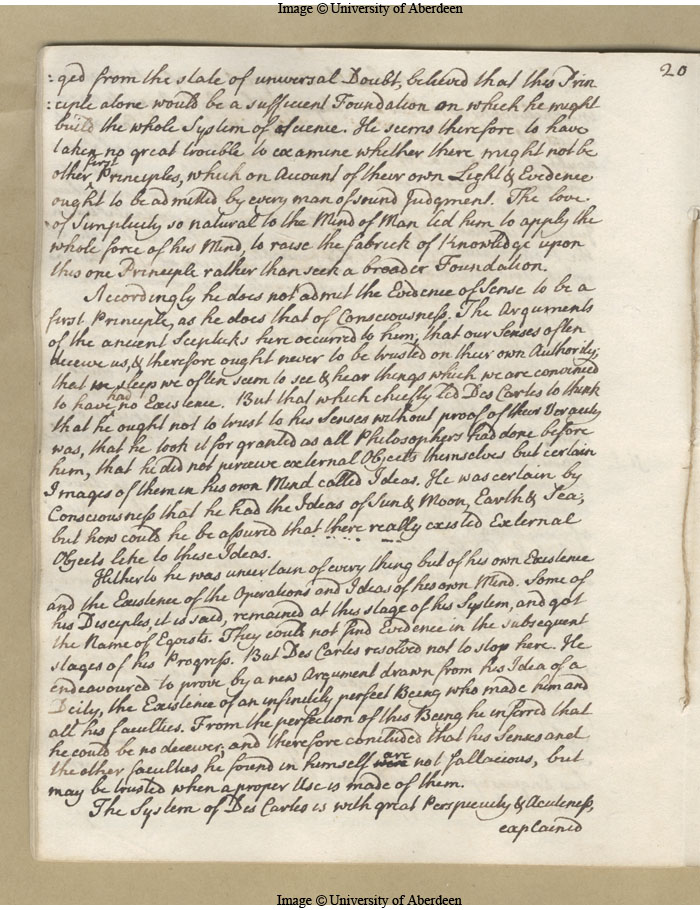 Image © University of Aberdeen
20
:ged from the state of universal Doubt, believed that this Prin
:ciple alone would be a sufficient Foundation on which he might
build the whole System of Science. He seems therefore to have
taken no great trouble to examine whether there might not be
other first Principles, which on Account of their own Light & Evidence
ought to be admitted by every man of sound Judgment. The love
of Simplicity so natural to the Mind of Man led him to apply the
whole force of his Mind, to raise the fabrick of Knowledge upon
this one Principle rather than seek a broader Foundation.
Accordingly he does not admit the Evidence of Sense to be a
first Principle, as he does that of Consciousness. The Arguments
of the ancient Scepticks here occurred to him; that our Senses often
deceive us, & therefore ought never to be trusted on their own Authority;
that in sleep we often seem to see & hear things which we are convinced
to have had no Existence. But that which chiefly led Des Cartes to think
that he ought not to trust to his Senses without proof of their Veracity
was, that he took it for granted as all Philosophers had done before
him, that he did not perceive external Objects themselves but certain
Images of them in his own Mind called Ideas. He was certain by
Consciousness that he had the Ideas of Sun & Moon, Earth & Sea;
but how could he be assured that there really existed External
Objects like to these Ideas.
Hitherto he was uncertain of every thing but of his own Existence
and the Existence of the Operations and Ideas of his own Mind. Some of
his Disciples, it is said, remained at this stage of his System, and got
the Name of Egoists. They could not find Evidence in the subsequent
stages of his Progress. But Des Cartes resolved not to stop here. He
endeavoured to prove by a new Argument drawn from his Idea of a
Deity, the Existence of an infinitely perfect Being who made him and
all his faculties. From the perfection of this Being he inferred that
he could be no deceiver, and therefore concluded that his Senses and
the other faculties he found in himself are not fallacious, but
may be trusted when a proper Use is made of them.
The System of Des Cartes is with great Perspicuity & Acuteness,
explained
Image © University of Aberdeen